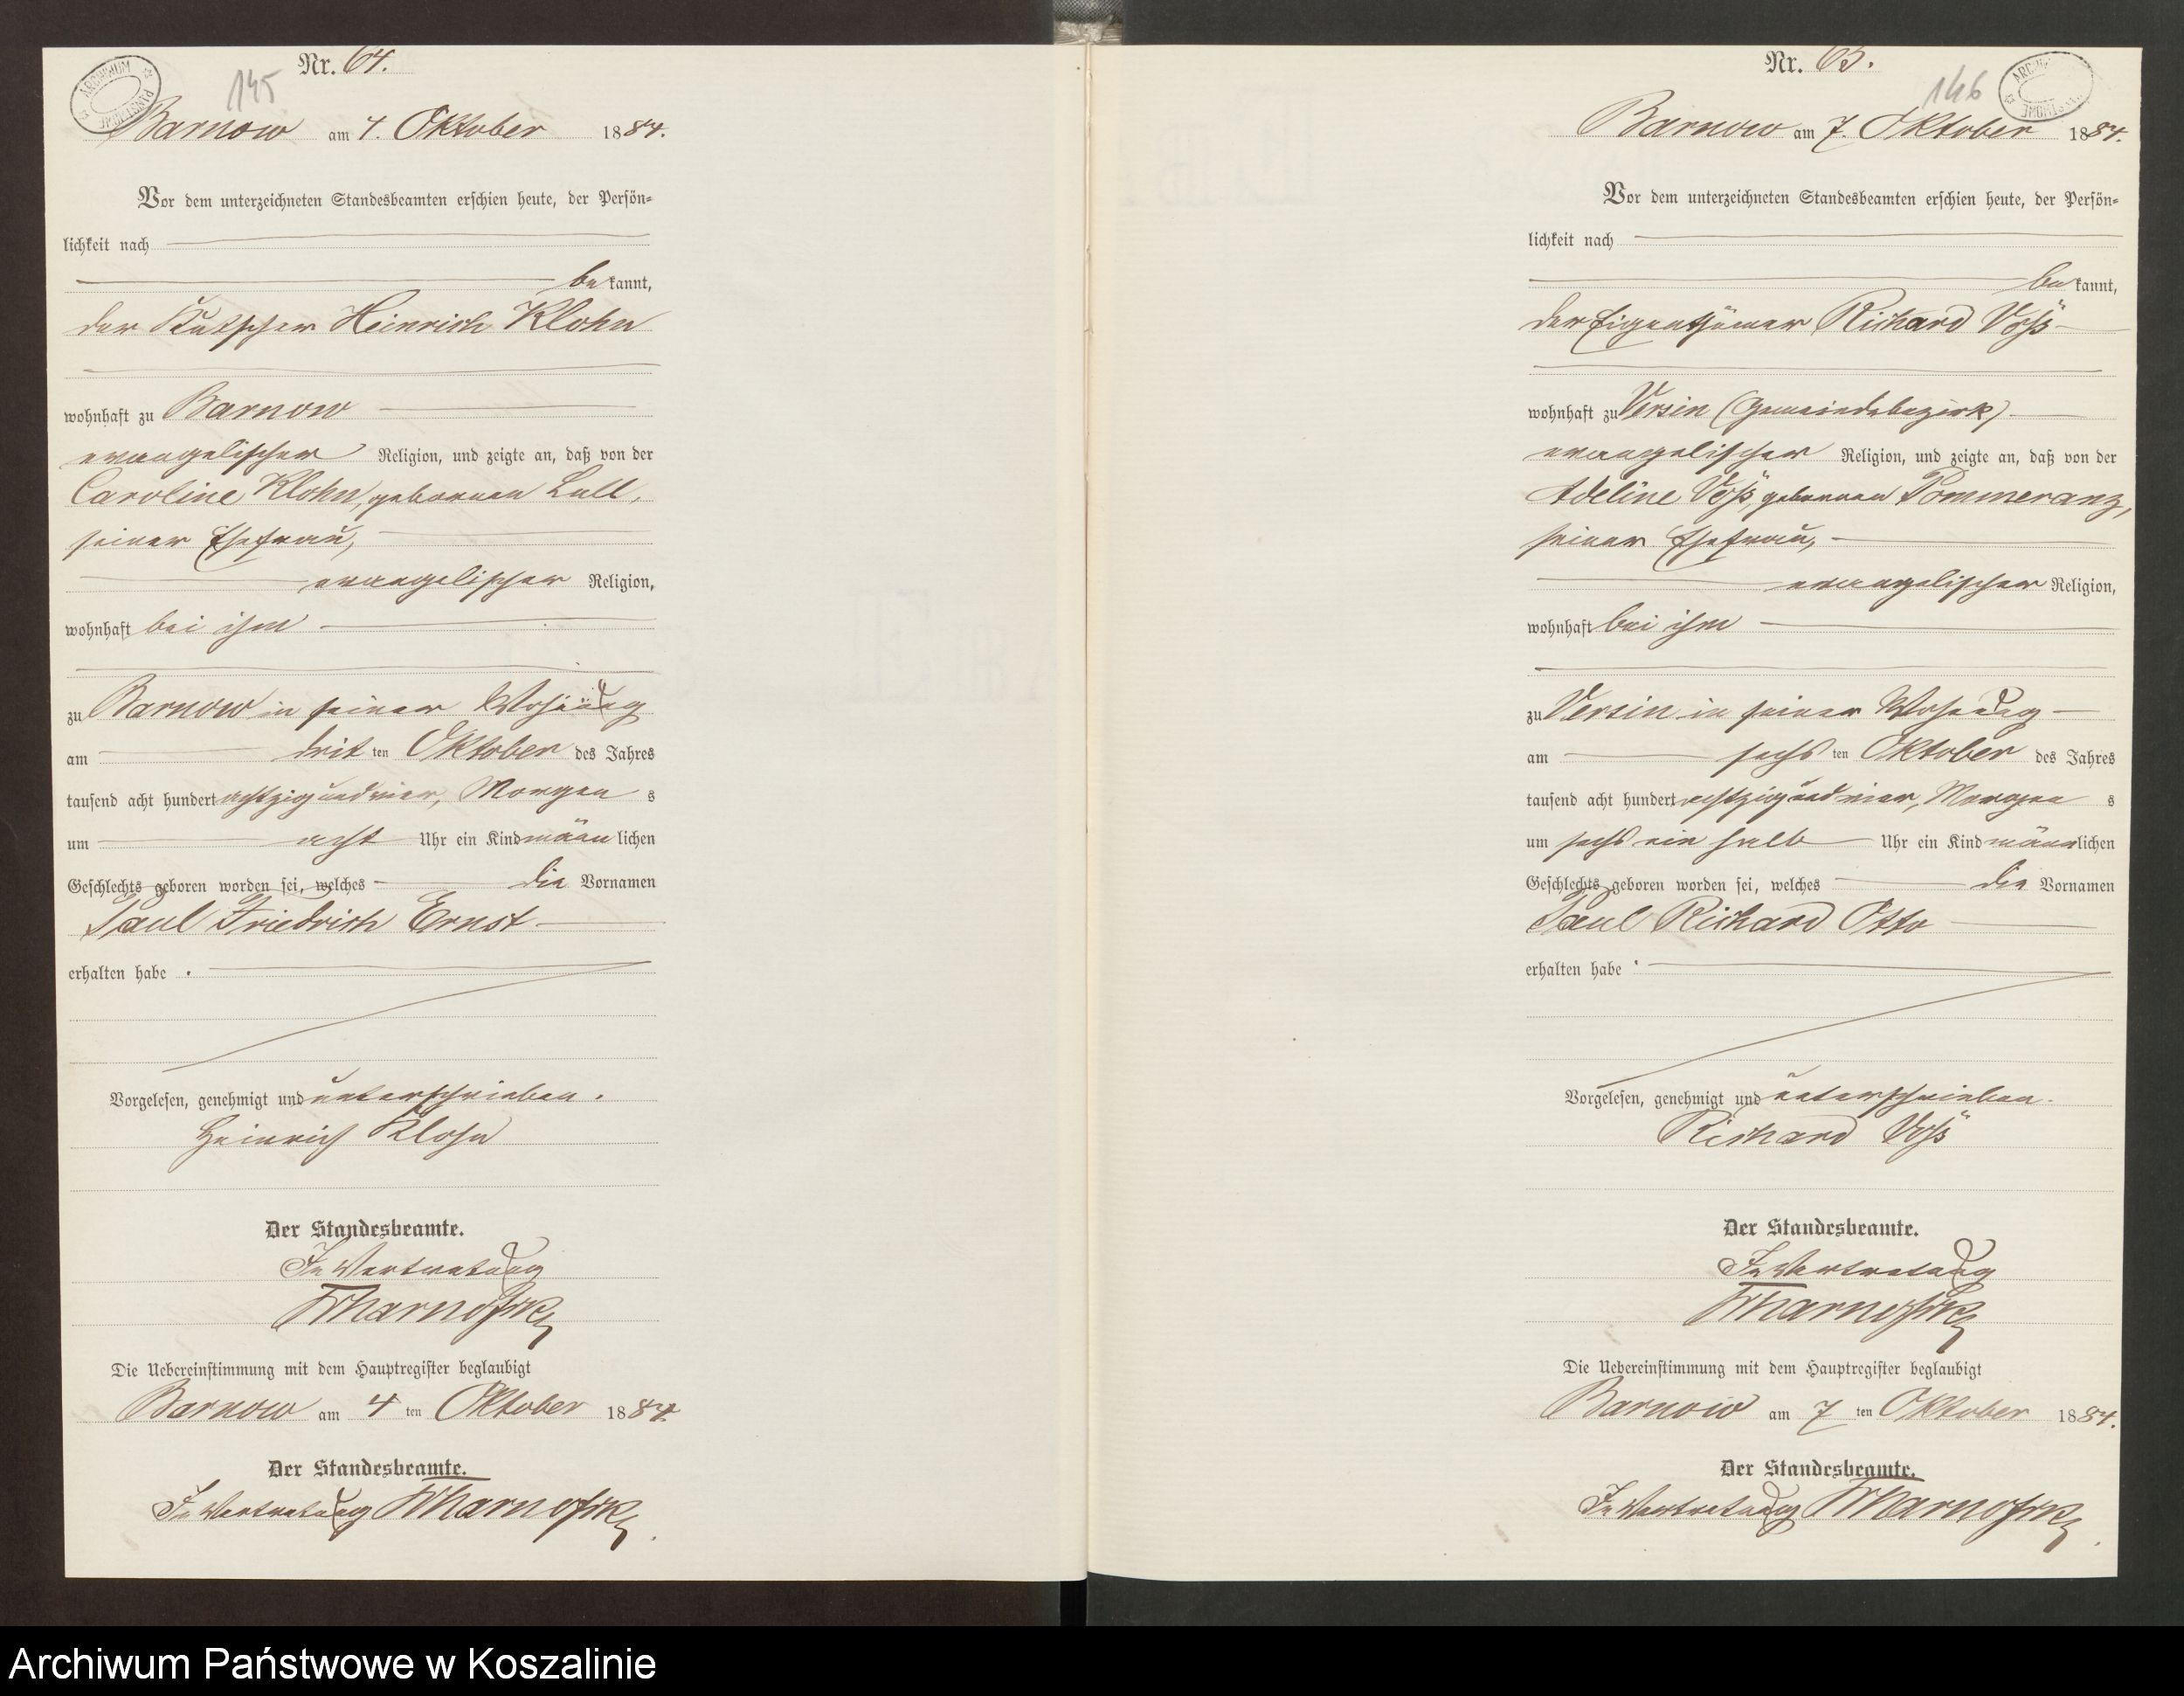 ARCHIWUM PAŃSTWOWE
145
Nr. 64.
Barnow am 4. Oktober 1884.
Vor dem unterzeichneten Standesbeamten erschien heute, der Persön-
lichkeit nach
bekannt,
der Kutscher Heinrich Klohn
wohnhaft zu Barnow
evangelischer Religion, und zeigte an, daß von der
Caroline Klohn, geborenen Lull,
seiner Ehefrau,
evangelischer Religion,
wohnhaft bei ihm
zu Barnow in seiner Wohnung
am dritten Oktober des Jahres
tausend acht hundert achtzig und vier, Morgens
um acht Uhr ein Kind männlichen
Geschlechts geboren worden sei, welches die Vornamen
Paul Friedrich Ernst
erhalten habe.
Vorgelesen, genehmigt und unterschrieben.
Heinrich Klohn
Der Standesbeamte.
In Vertretung
Die Uebereinstimmung mit dem Hauptregister beglaubigt
Barnow am 4ten Oktober 1884.
Der Standesbeamte.
In Vertretung
Nr. 65.
146
Barnow am 7. Oktober 1884.
Vor dem unterzeichneten Standesbeamten erschien heute, der Persön-
lichkeit nach
bekannt,
der Eigenthümer Richard Voß
wohnhaft zu Versin (Gemeindebezirk)
evangelischer Religion, und zeigte an, daß von der
Adeline Voß, geborenen Pommeranz,
seiner Ehefrau,
evangelischer Religion,
wohnhaft bei ihm
zu Versin in seiner Wohnung
am sechsten Oktober des Jahres
tausend acht hundert achtzig und vier, Morgens
um sechs ein halb Uhr ein Kind männlichen
Geschlechts geboren worden sei, welches die Vornamen
Paul Richard Otto
erhalten habe.
Vorgelesen, genehmigt und unterschrieben.
Richard Voß
Der Standesbeamte.
In Vertretung
Die Uebereinstimmung mit dem Hauptregister beglaubigt
Barnow am 7ten Oktober 1884.
Der Standesbeamte.
In Vertretung
Archiwum Państwowe w Koszalinie